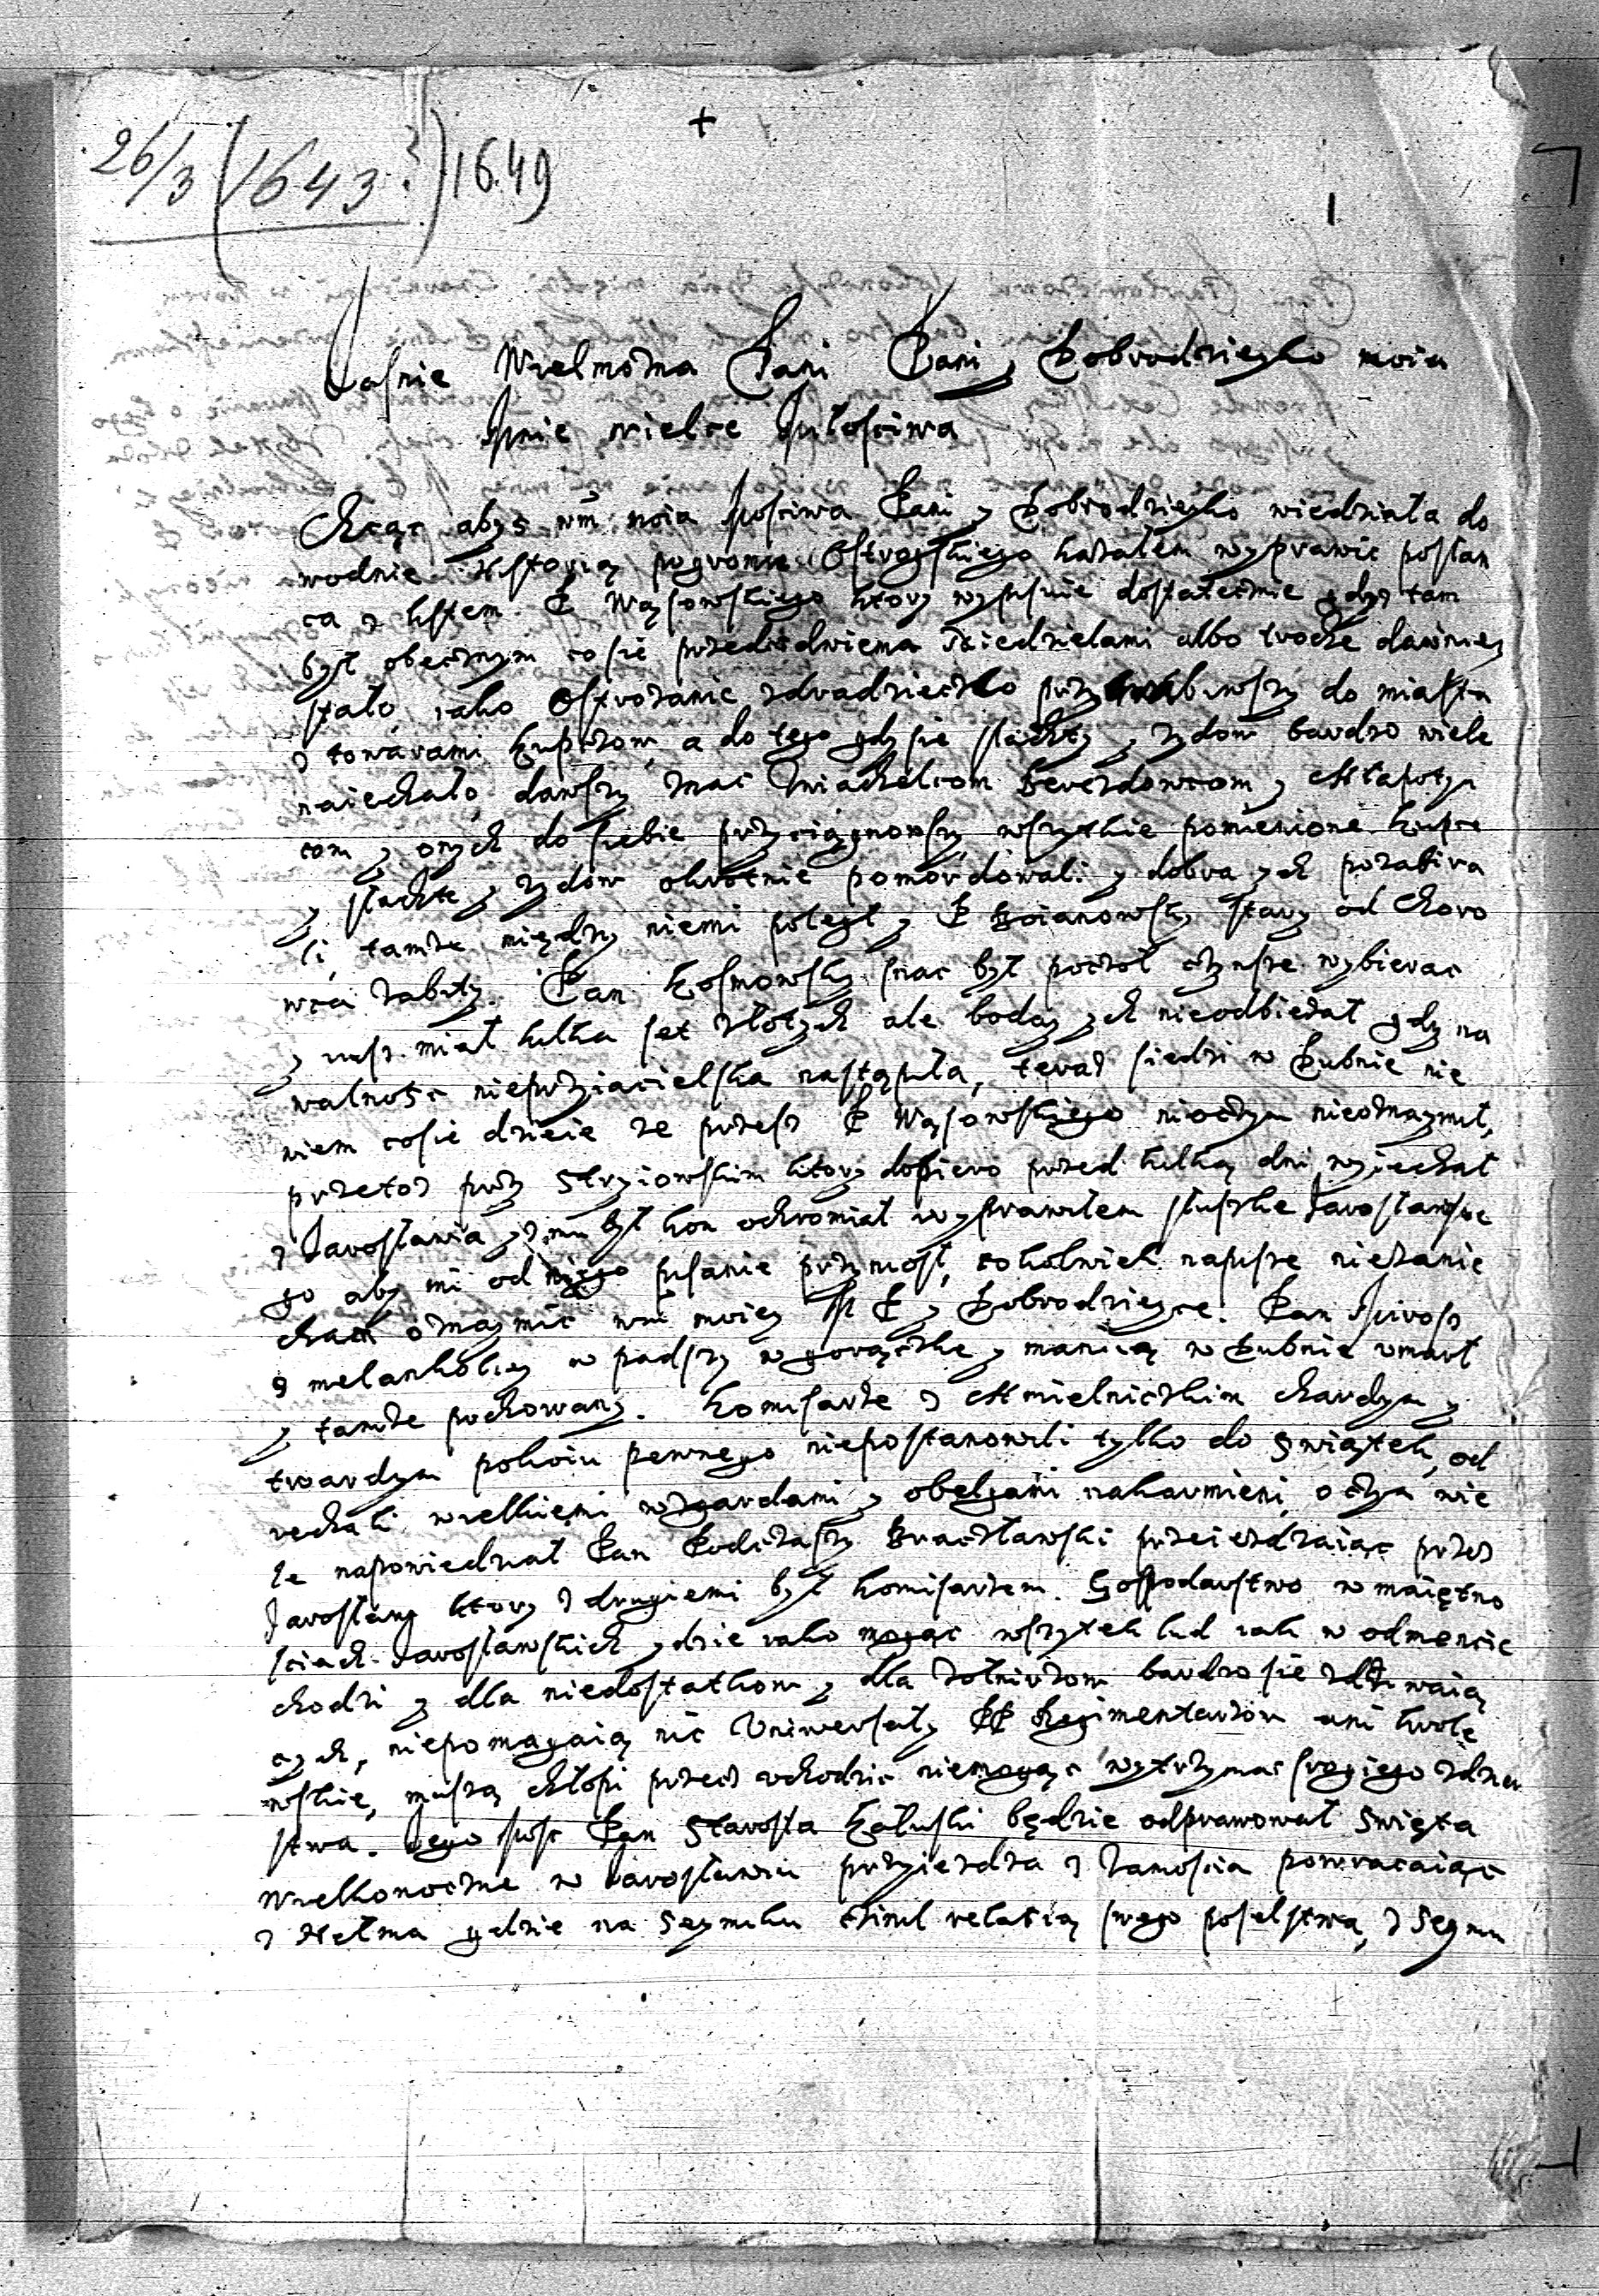 +
26/3 (1643?) 1649
1
Jasnie Wielmożna Pani Pani y Dobrodzieyko moia
Mnie wielce Miłosciwa
Chcąc abys wm̃ moia Mosciwa Pani y Dobrodzieyko wiedziała do
wodnie Historią pogromu Ostrogskiego kazałem wyprawić posłan
ca z listem P Wąsowskiego ktory wypisuie dostatecznie gdyż tam
był obecnym co się przede dwiema Niedzielami albo trochę dawniey
stało, iako Ostrożanie zdradziecko przywabiwszy do miasta
z towarami kupcow, a do tego gdy się slachty y zydow bardzo wiele
naiechało, dawszy znać Zwiahelcom Berezdowcom y Chłapotyn
com y onych do siebie przyciągnowszy, wszytkie pomienione kupce
y slachtę y zydow okrotnie pomordowali y dobra ych pozabira
li, tamże między niemi poległ y P Boianowsky stary od Choro
wca zabity. Pan Kosmowsky snac był począł czynsze wybierac
y iusz miał kilka set złotych ale boday ych nieodbieżał gdy na
walnosc nieprzyiacielska nastąpiła, teraz siedzi w Dubnie nie
wiem co sie dzieie ze przesz P Wąsowskiego nioczym nieoznaymił,
przetoż przy Stryiowskim ktory dopiero przed kilką dni wyiechał
z Jarosławia yż mu był kon ochromiał wyprawiłem służkę Jarosławskie
go aby mi od niego pisanie przyniosł, cokolwiek napisze niezanie
cham oznaymić wm̃ moiey M P y Dobrodzieyce. Pan
z melankoliey w padszy w gorączkę y manią w Dubnie vmarł
y tamże pochowany. Komisarze z Chmielnickim hardym y
twardym pokoiu pewnego niepostanowili tylko do Swiątek, od
iechali wielkiemi wzgardami y obelgami nakarmieni, o czym wie
le napowiedział Pan Podczaszy Bracławski przeiezdzaiąc przez
Jarosław ktory z drugiemi był komisarzem. Gospodarstwo w maiętno
sciach Jarosławskich ydzie iako mogąc wszytek lud iak w odmencie
chodzi y dla niedostatkow y dla żołnirzow bardzo się zdzie­raią
cych, niepomagaią nic Vniwersały PP Regimentarzow ani krole
wskie, muszą chłopi przecz vchodzic niemogąc wytrzymac srogiego zdzier
stwa. Jego Mosc Pan Starosta Kałuski będzie odprawował Swięta
Wielkonocne w Jarosławiu przyiezdza z Zamoscia powracaiąc
z Hełma gdzie na Seymiku czinił relacią swego poselstwa z Seymu